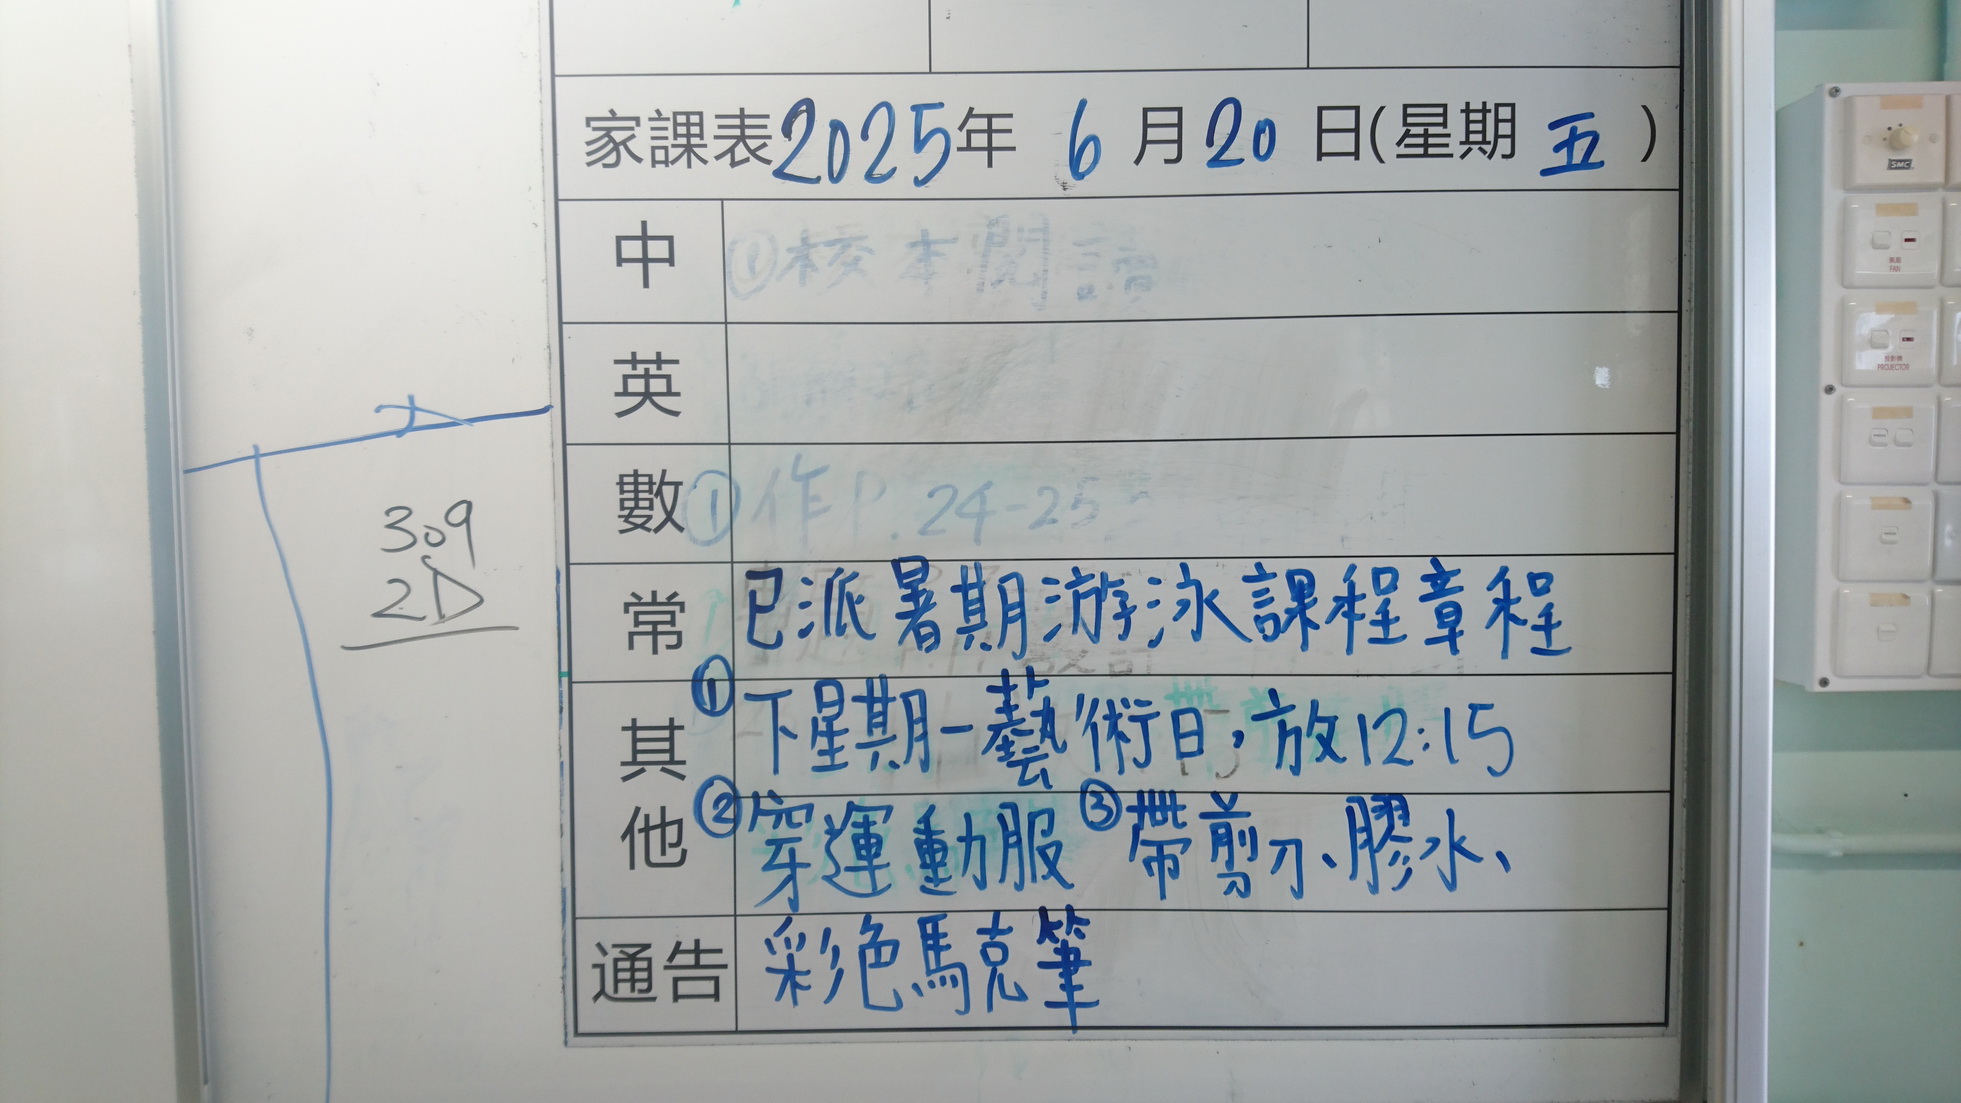 家課表2025年 6月20日(星期五)
中 ①校本閱讀
英
數 ①作P.24-25
常 已派暑期游泳課程章程
其他 ①下星期一藝術日，放12:15
②穿運動服 ③帶剪刀、膠水、
通告 彩色馬克筆
309
2D
SMC
風扇
FAN
投影機
PROJECTOR